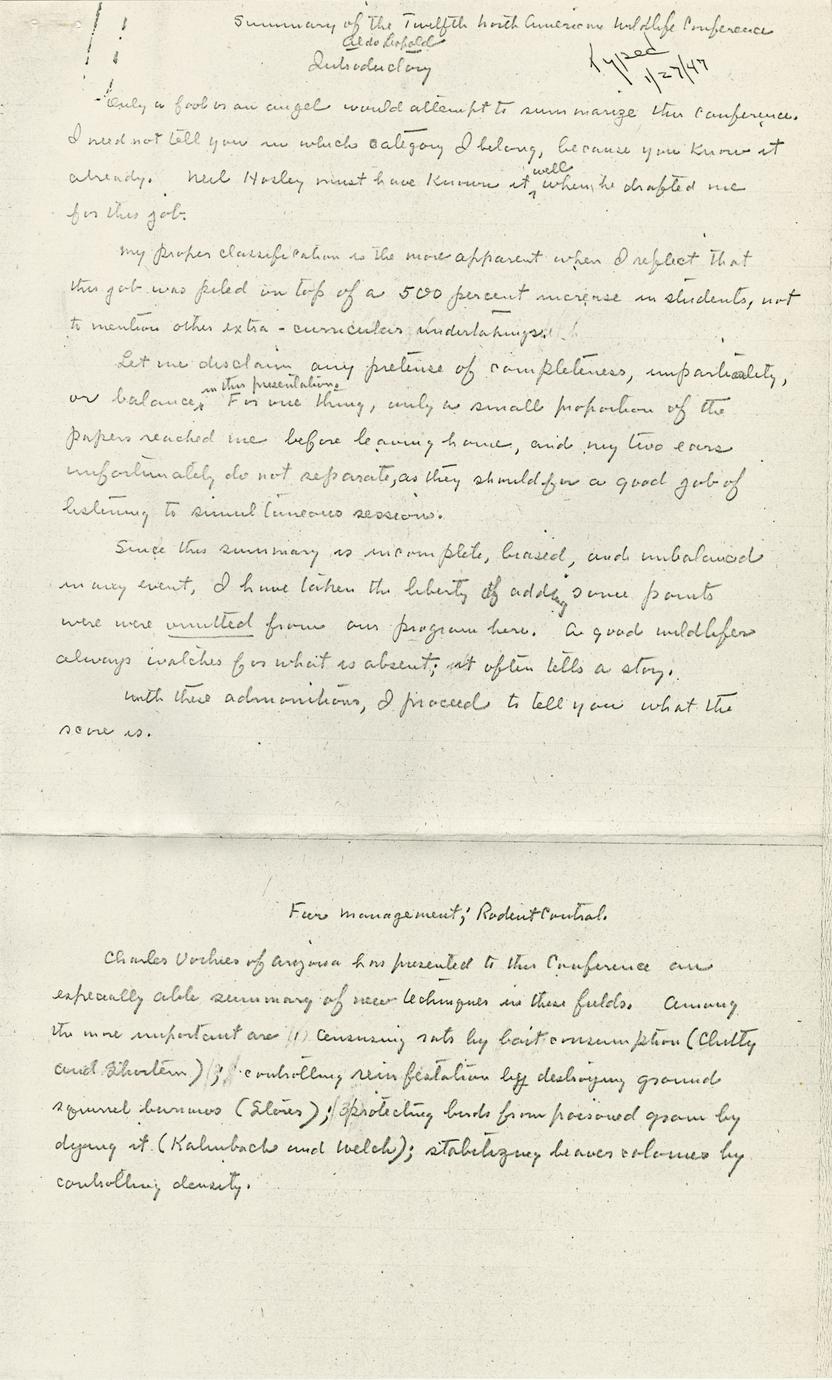 Summary of the Twelfth North American Wildlife Conference
Aldo Leopold
typed
1/27/47
Introductory
Only a fool or an angel would attempt to summarize this conference.
I need not tell you in which category I belong, because you know it
already. Neil Hosley must have known it well when he drafted me
for this job.
My proper classification is the more apparent when I reflect that
this job was piled on top of a 500 percent increase in students, not
to mention other extra-curricular undertakings.
Let me disclaim any pretense of completeness, impartiality,
or balance in this presentation. For one thing, only a small proportion of the
papers reached me before leaving home, and my two ears
unfortunately do not separate, as they should for a good job of
listening to simultaneous sessions.
Since this summary is incomplete, biased, and unbalanced
in any event, I have taken the liberty of adding some points
were were omitted from our program here. A good wildlifer
always watches for what is absent; it often tells a story.
With these admonitions, I proceed to tell you what the
score is.
Fur Management; Rodent Control.
Charles Vorhies of Arizona has presented to this Conference an
especially able summary of new techniques in these fields. Among
the more important are (1) censusing rats by bait consumption (Chitty
and Shorten); controlling reinfestation by destroying ground
squirrel burrows (Storer); protecting birds from poisoned grain by
dyeing it (Kalmbach and Welch); stabilizing beaver colonies by
controlling density.